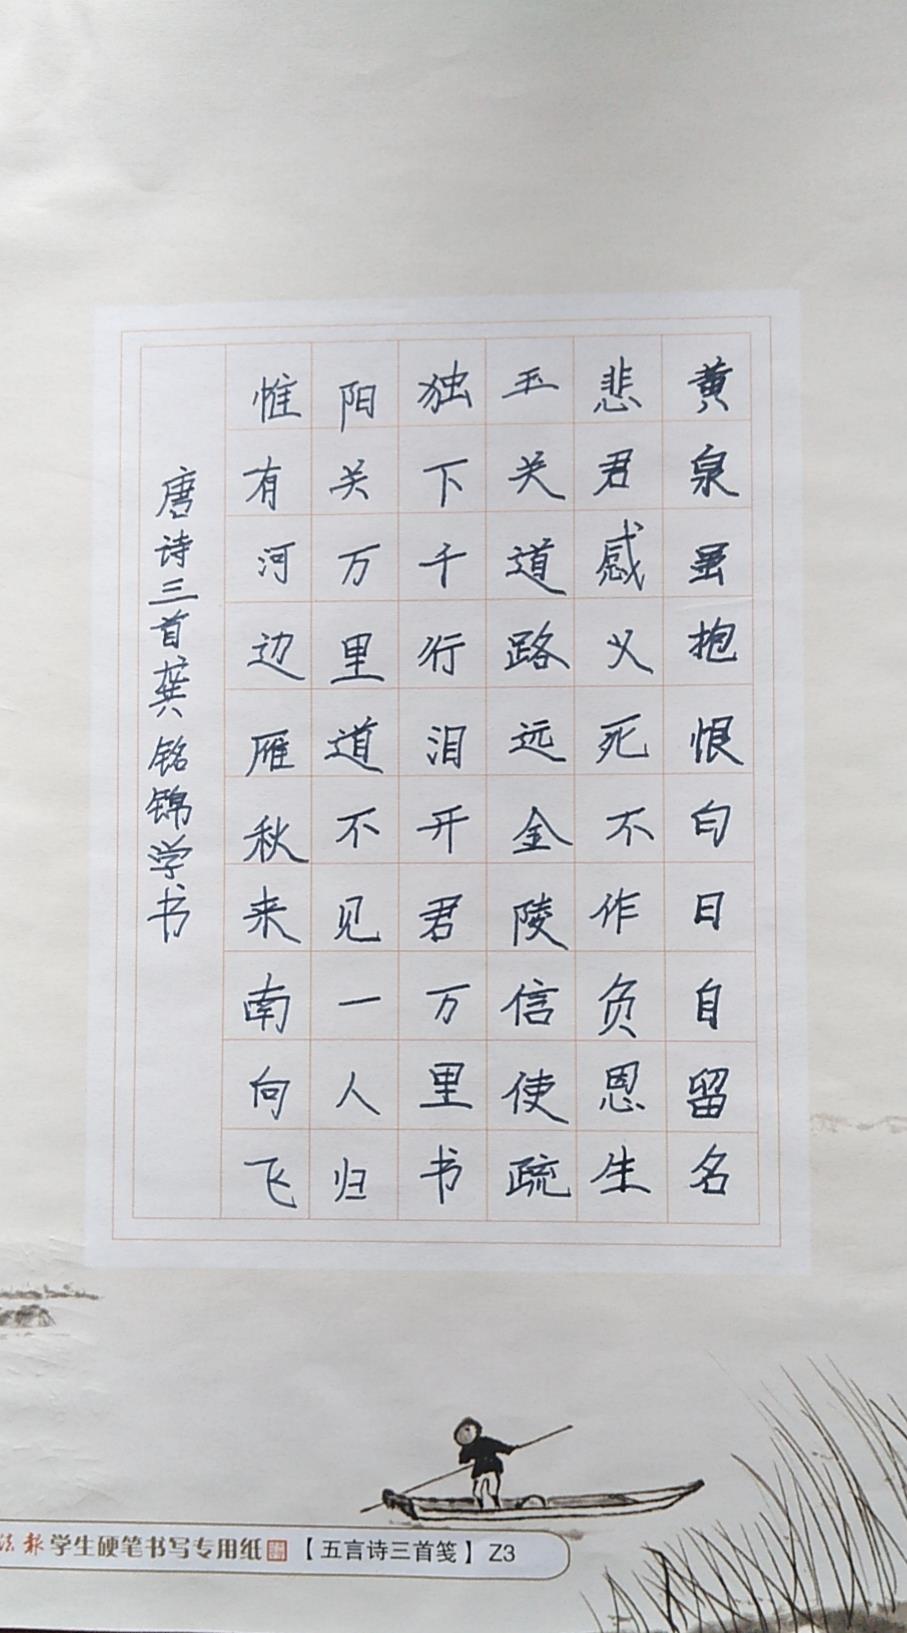 黄泉虽抱恨白日自留名
悲君感义死不作负恩生
玉关道路远金陵信使疏
独下千行泪开君万里书
阳关万里道不见一人归
惟有河边雁秋来南向飞
唐诗三首龚铭锦学书
法报学生硬笔书写专用纸【五言诗三首笺】Z3